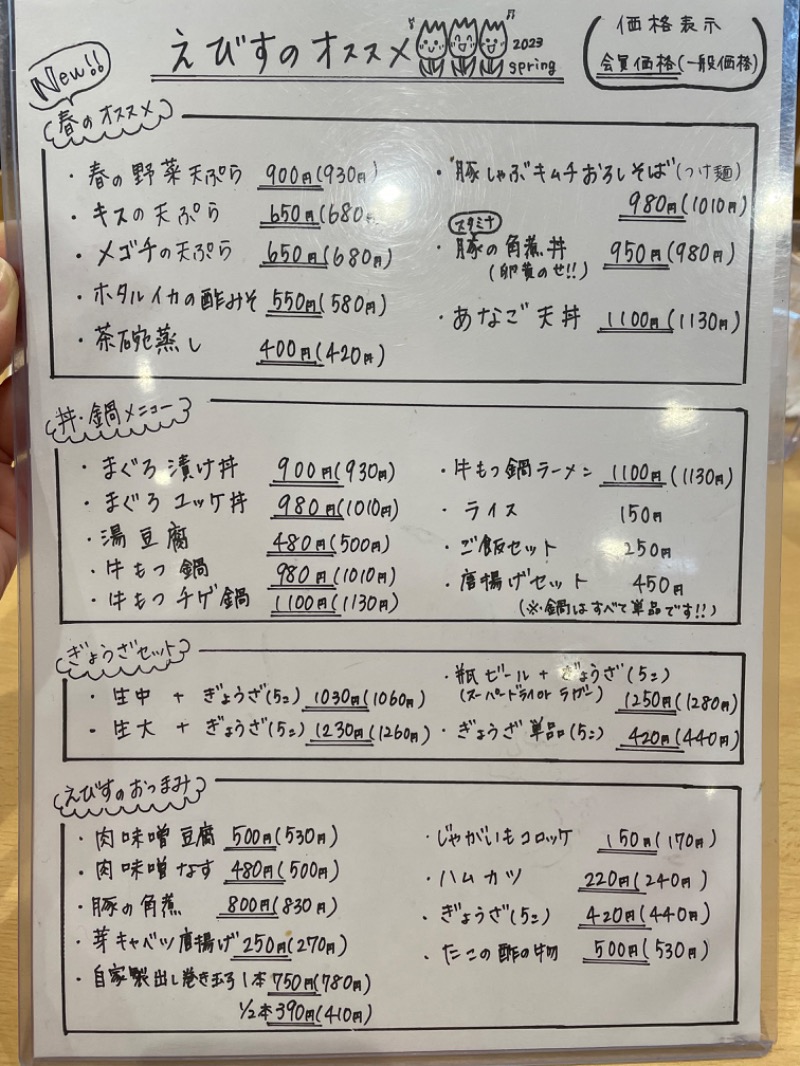 えびすのオススメ
2023
spring
価格表示
会員価格(一般価格)
New!!
春のオススメ
・春の野菜天ぷら 900円(930円)
・キスの天ぷら 650円(680円
・メゴチの天ぷら 650円(680円)
・ホタルイカの酢みそ 550円(580円)
・茶碗蒸し 400円(420円)
・豚しゃぶキムチおろしそば(つけ麺)
980円(1010円)
スタミナ
・豚の角煮丼 950円(980円)
(卵黄のせ!!)
・あなご天丼 1100円(1130円)
丼・鍋メニュー
・まぐろ漬け丼 900円(930円)
・まぐろユッケ丼 980円(1010円)
・湯豆腐 480円(500円)
・牛もつ鍋 980円(1010円)
・牛もつチゲ鍋 1100円(1130円)
・牛もつ鍋ラーメン 1100円(1130円)
・ライス 150円
・ご飯セット 250円
・唐揚げセット 450円
(※鍋はすべて単品です!!)
ぎょうざセット
・生中 + ぎょうざ(5コ) 1030円(1060円)
・生大 + ぎょうざ(5コ) 1230円(1260円)
・瓶ビール + ぎょうざ(5コ)
(スーパードライor ラガー) 1250円(1280円)
・ぎょうざ単品(5コ) 420円(440円)
えびすのおつまみ
・肉味噌豆腐 500円(530円)
・肉味噌なす 480円(500円)
・豚の角煮 800円(830円)
・芽キャベツ唐揚げ 250円(270円)
・自家製出し巻き玉子 1本 750円(780円)
1/2本 390円(410円)
・じゃがいもコロッケ 150円(170円)
・ハムカツ 220円(240円)
・ぎょうざ(5コ) 420円(440円)
・たこの酢の物 500円(530円)